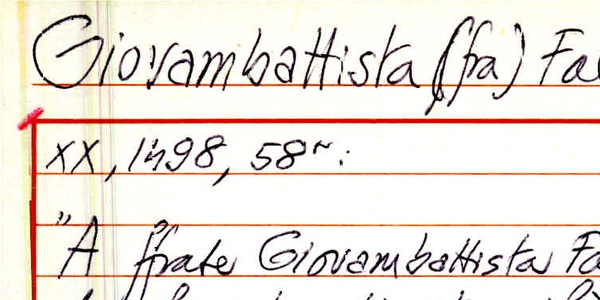 Giovambattista (fra) Fa
XX, 1498, 58r:
"A ffrate Giovambattista Fa